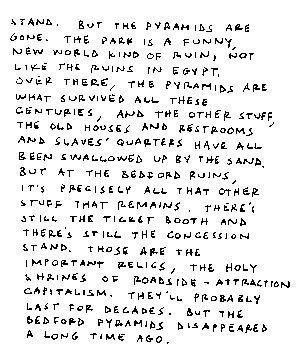 STAND. BUT THE PYRAMIDS ARE
GONE. THE PARK IS A FUNNY,
NEW WORLD KIND OF RUIN, NOT
LIKE THE RUINS IN EGYPT.
OVER THERE, THE PYRAMIDS ARE
WHAT SURVIVED ALL THESE
CENTURIES, AND THE OTHER STUFF,
THE OLD HOUSES AND RESTROOMS
AND SLAVES' QUARTERS HAVE ALL
BEEN SWALLOWED UP BY THE SAND.
BUT AT THE BEDFORD RUINS,
IT'S PRECISELY ALL THAT OTHER
STUFF THAT REMAINS. THERE'S
STILL THE TICKET BOOTH AND
THERE'S STILL THE CONCESSION
STAND. THOSE ARE THE
IMPORTANT RELICS, THE HOLY
SHRINES OF ROADSIDE-ATTRACTION
CAPITALISM. THEY'LL PROBABLY
LAST FOR DECADES. BUT THE
BEDFORD PYRAMIDS DISAPPEARED
A LONG TIME AGO.